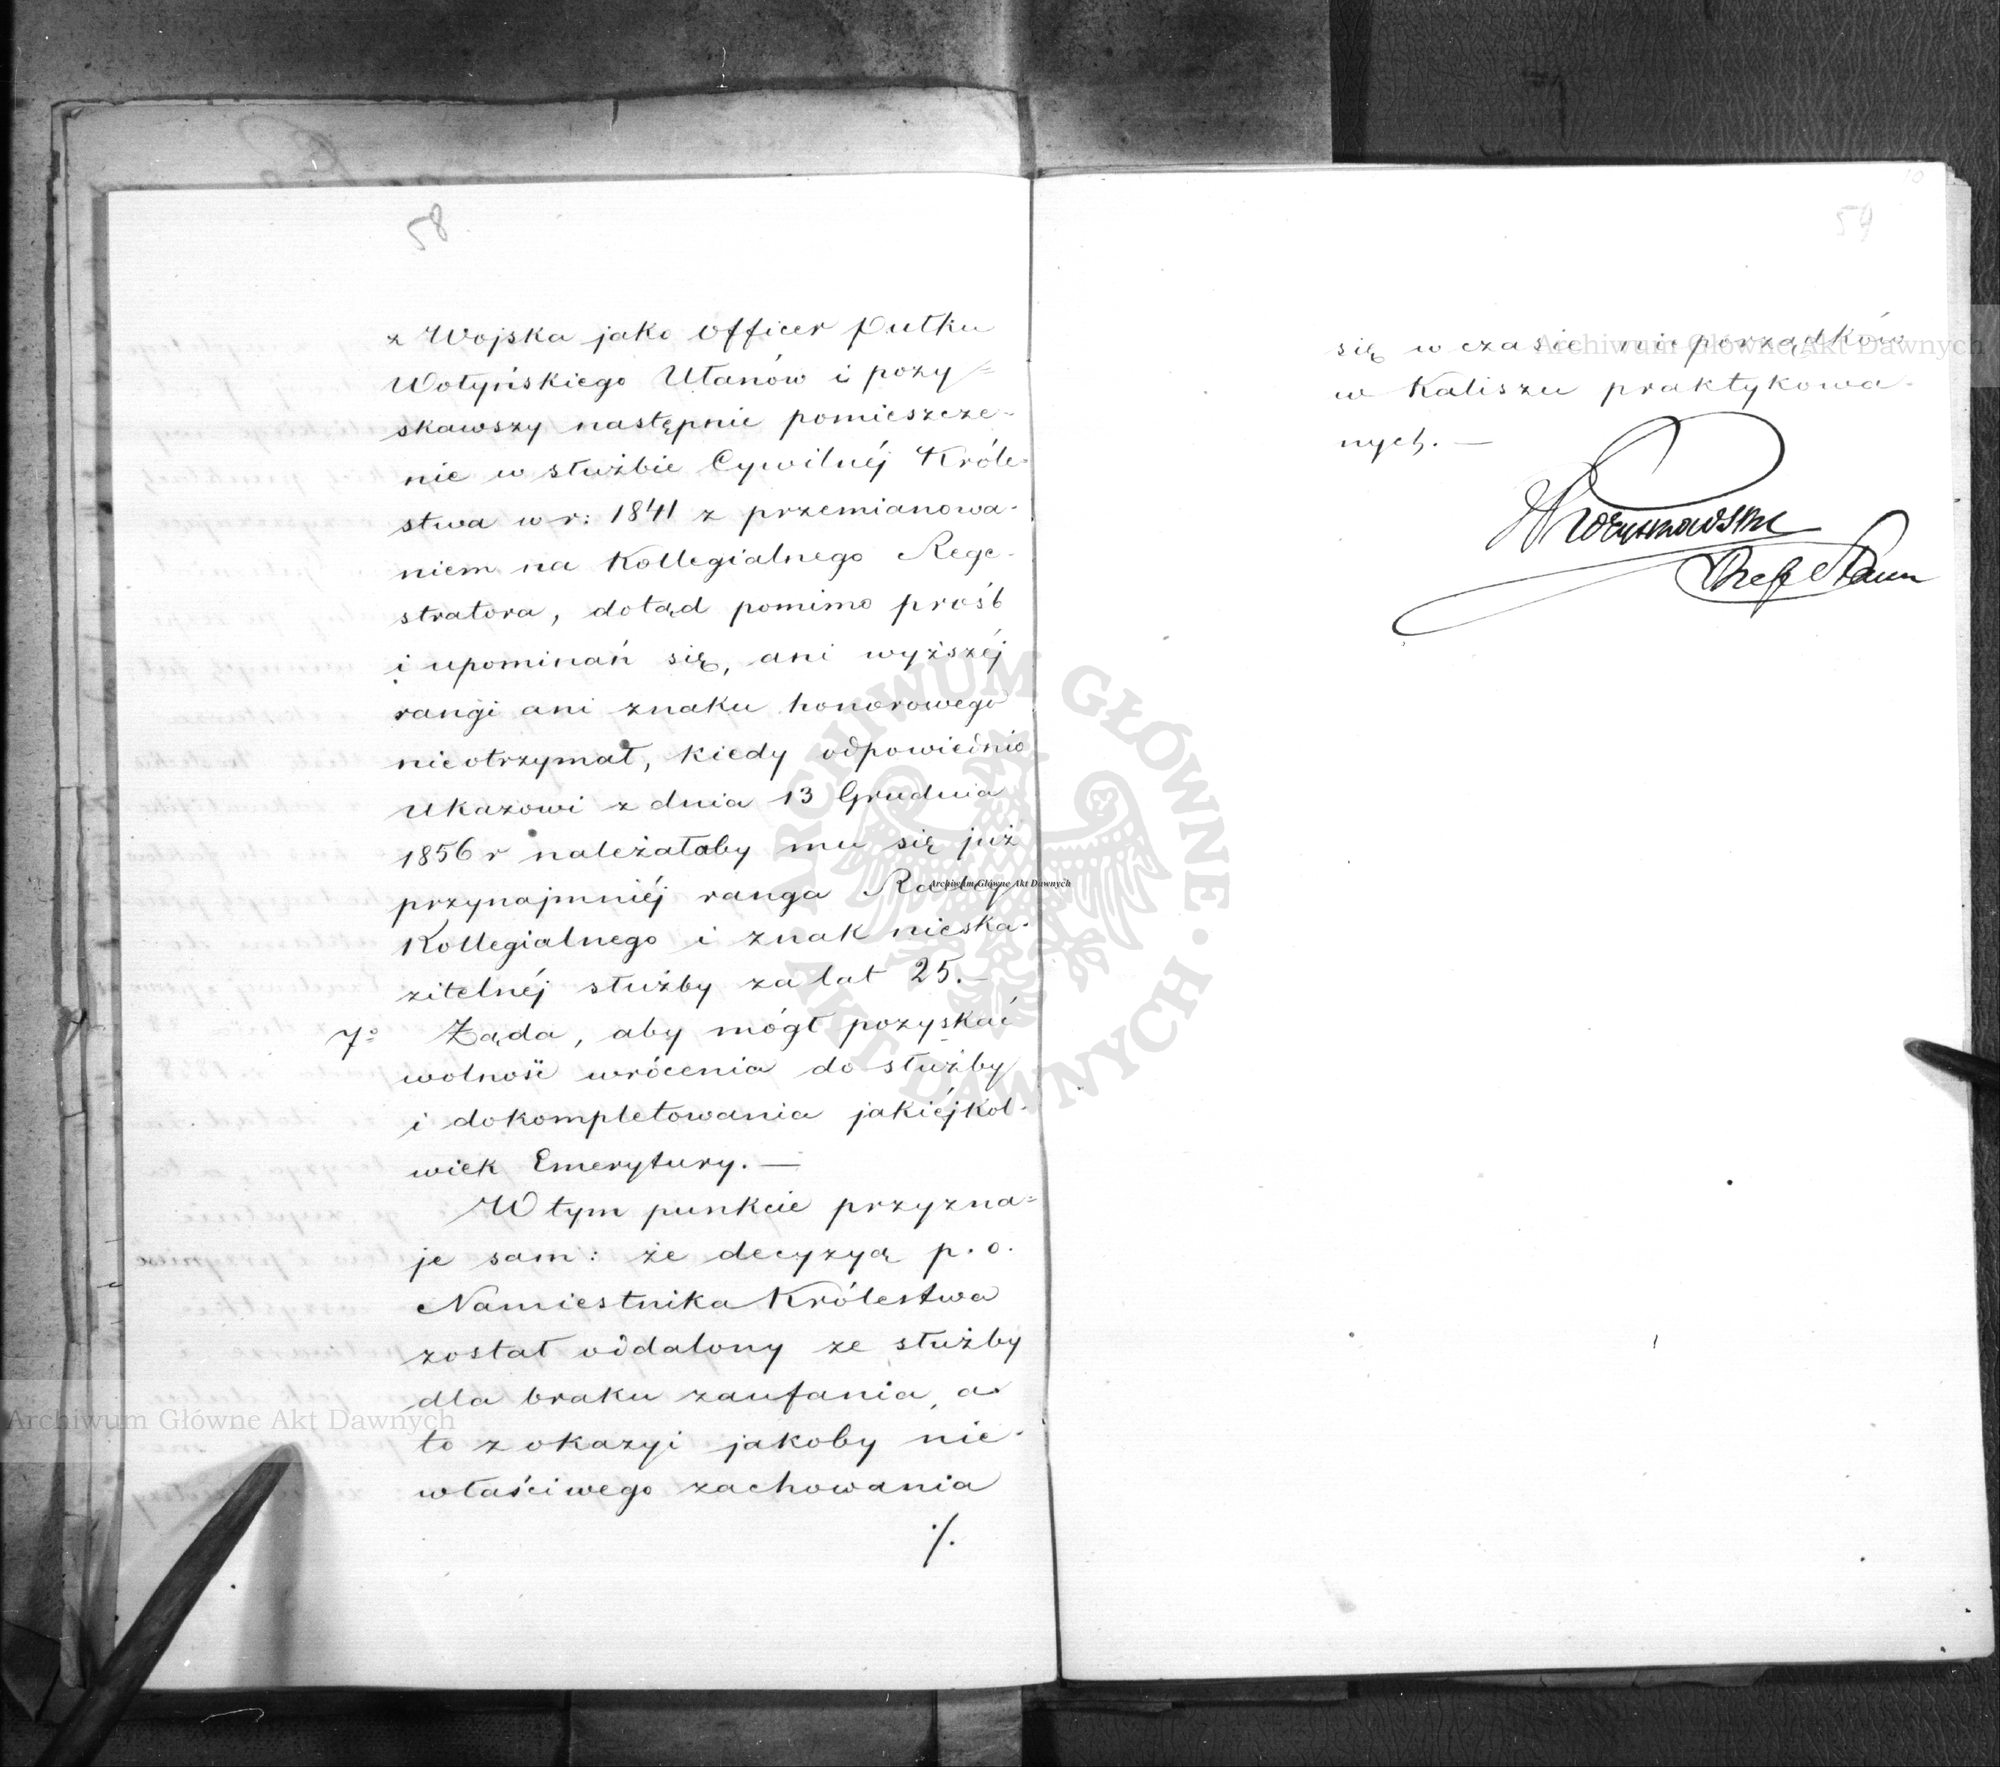 58
z Wojska jako Officer Pułku
Wołyńskiego Ułanów i pozy=
skawszy następnie pomieszcze-
nie w służbie Cywilnéj Króle-
stwa w r: 1841 z przemianowa-
niem na Kollegialnego Rege-
stratora, dotąd pomimo próśb
i upominań się, ani wyższéj
rangi ani znaku honorowego
nieotrzymał, kiedy odpowiednio
Ukazowi z dnia 13 Grudnia
1856 r należałaby mu się już
przynajmniéj ranga Radcy
Kollegialnego i znak nieska-
zitelnéj służby za lat 25.—
7º Żąda, aby mógł pozyskać
wolność wrócenia do służby
i dokompletowania jakiéjkol-
wiek Emerytury.—
W tym punkcie przyzna=
je sam: że decyzyą p. o.
Namiestnika Królestwa
został oddalony ze służby
dla braku zaufania, a
to z okazyi jakoby nie-
właściwego zachowania
./.
59
się w czasie nieporządków
w Kaliszu praktykowa-
nych.—
Archiwum Główne Akt Dawnych
Archiwum Główne Akt Dawnych
Archiwum Główne Akt Dawnych
ARCHIWUM GŁÓWNE AKT DAWNYCH